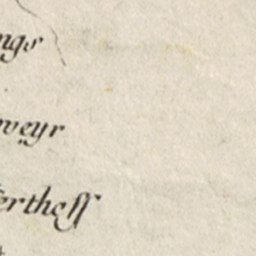 ngs
weyr
erthess